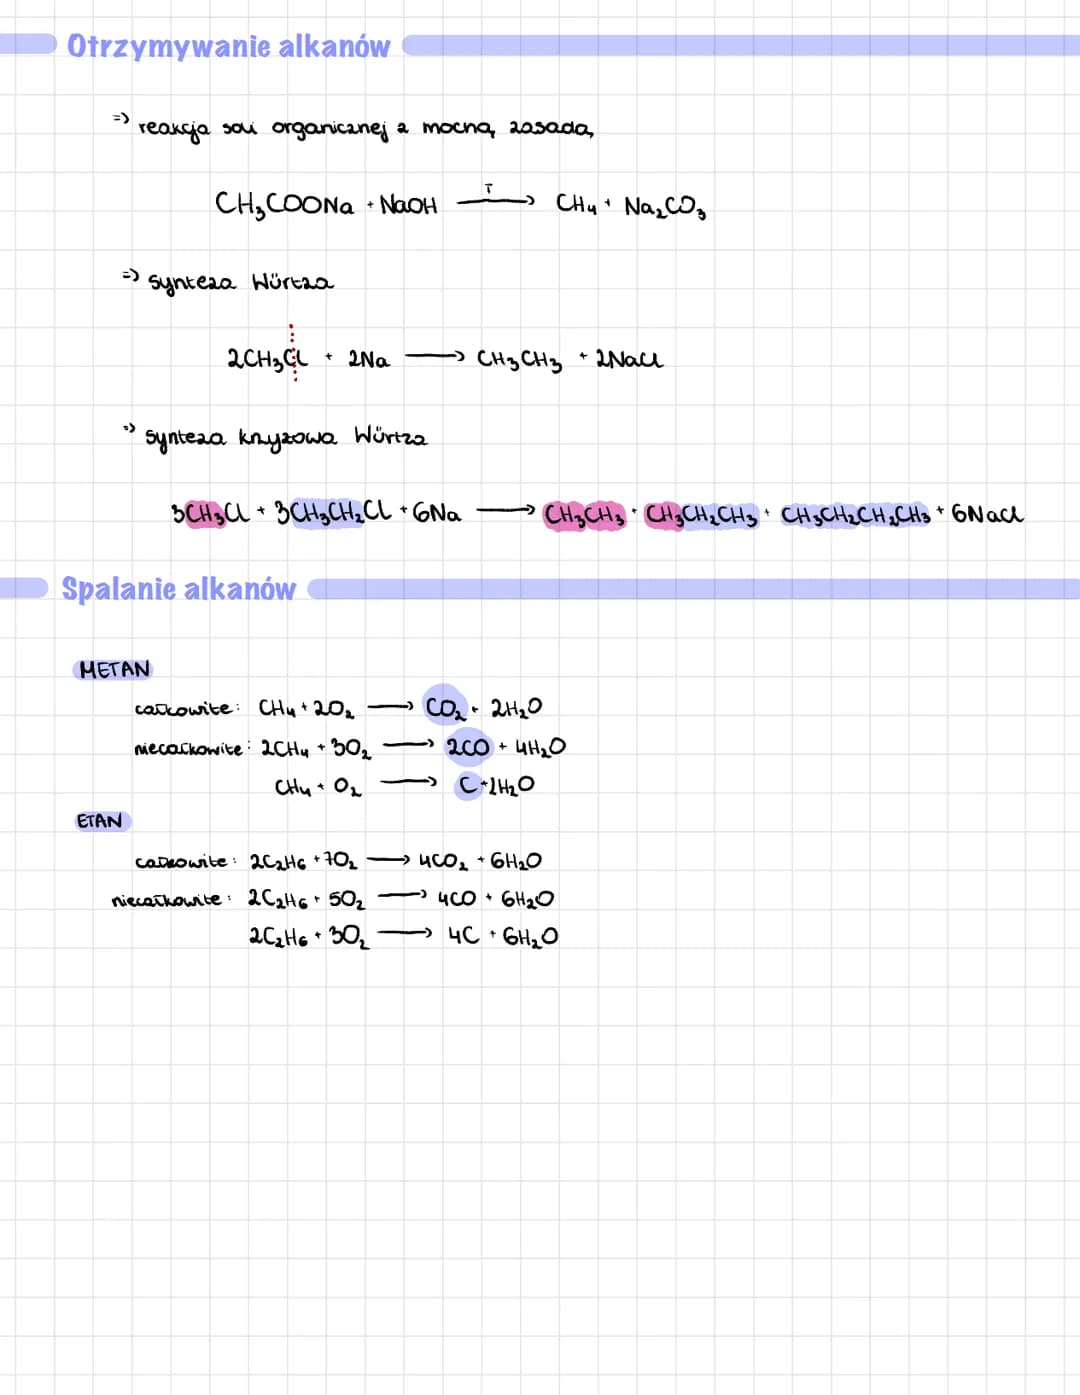 Otrzymywanie alkanów
=> reakcja soli organicznej z mocną zasadą
CH₃COONa + NaOH —T→ CH₄ + Na₂CO₃
=> synteza Würtza
2CH₃Cl + 2Na → CH₃CH₃ + 2NaCl
=> synteza krzyżowa Würtza
3CH₃Cl + 3CH₃CH₂Cl + 6Na → CH₃CH₃ + CH₃CH₂CH₃ + CH₃CH₂CH₂CH₃ + 6NaCl
Spalanie alkanów
METAN
całkowite: CH₄ + 2O₂ → CO₂ + 2H₂O
niecałkowite: 2CH₄ + 3O₂ → 2CO + 4H₂O
CH₄ + O₂ → C + 2H₂O
ETAN
całkowite: 2C₂H₆ + 7O₂ → 4CO₂ + 6H₂O
niecałkowite: 2C₂H₆ + 5O₂ → 4CO + 6H₂O
2C₂H₆ + 3O₂ → 4C + 6H₂O